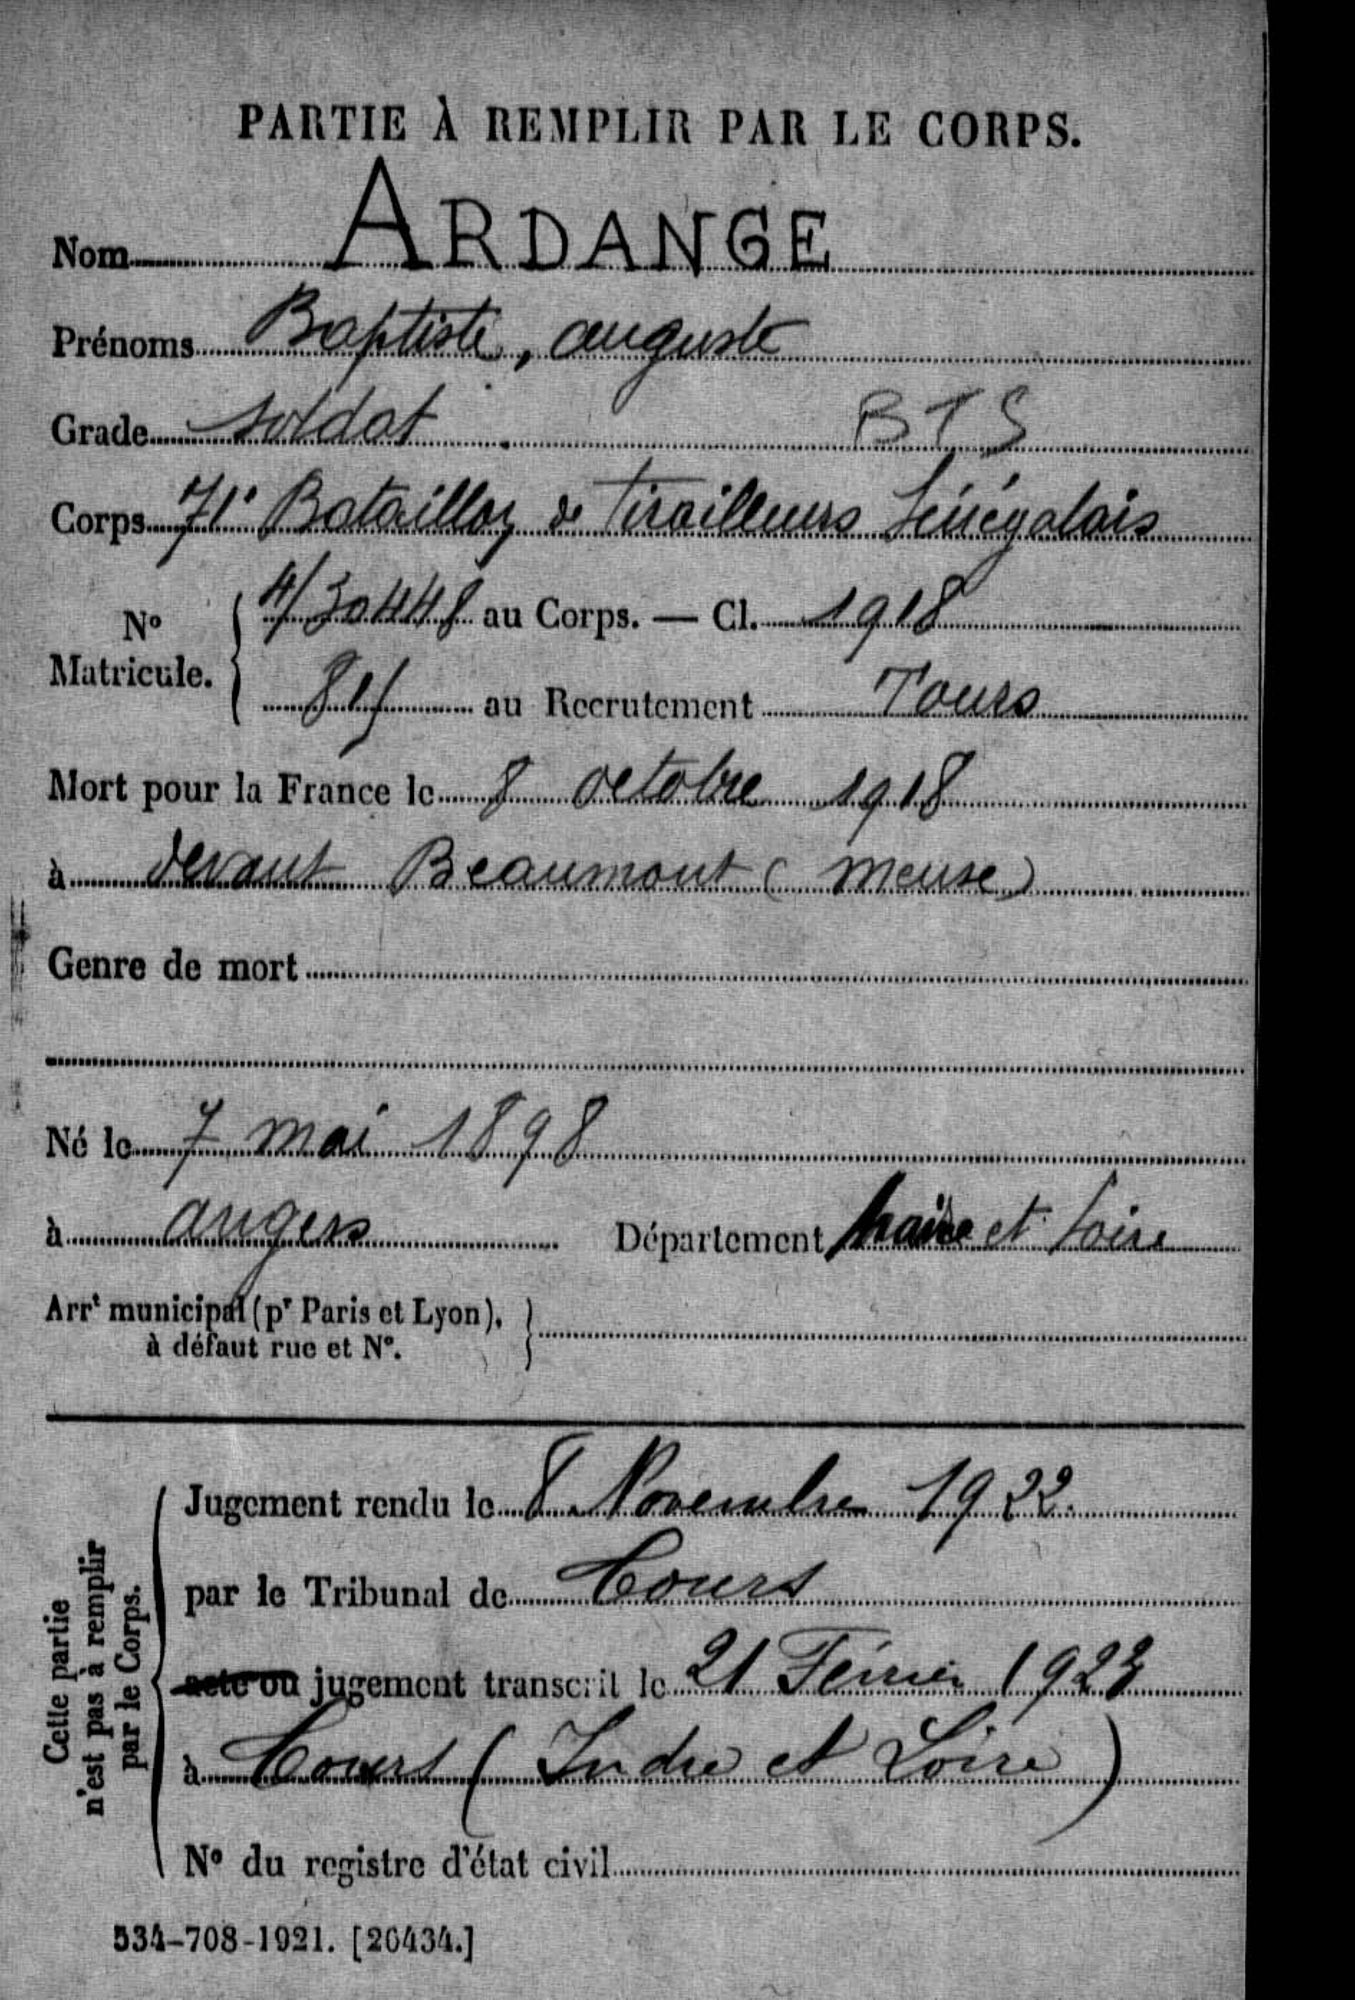 PARTIE À REMPLIR PAR LE CORPS.
Nom ARDANGE
Prénoms Baptiste, auguste
Grade soldat BTS
Corps 71e Bataillon de Tirailleurs Sénégalais
No Matricule. { 4/30448 au Corps. — Cl. 1918
au Recrutement Tours
Mort pour la France le 8 octobre 1918
à devant Beaumont (Meuse)
Genre de mort
Né le 7 mai 1898
à angers Département Maine et Loire
Arrt municipal (pr Paris et Lyon),
à défaut rue et No.
Cette partie
n'est pas à remplir
par le Corps.
Jugement rendu le 8 Novembre 1922.
par le Tribunal de Tours
acte ou jugement transcrit le 21 Février 1923
à Tours (Indre et Loire)
No du registre d'état civil
534-708-1921. [26434.]